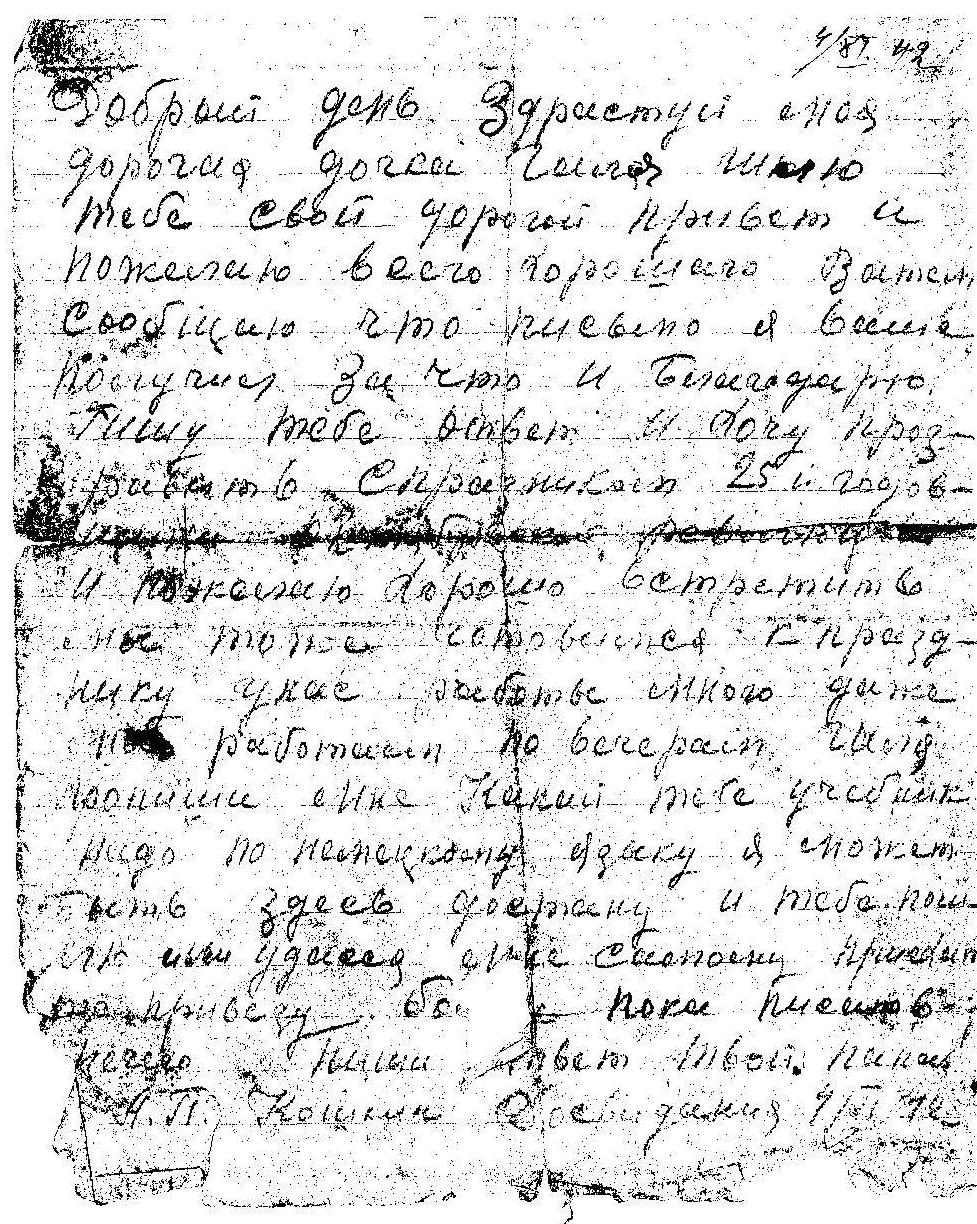 4/XI 42
Добрый день Здраствуй моя
дорогая дочка Галя шлю
тебе свой дорогой привет и
пожелаю всего хорошаго Затем
сообщаю что письмо я ваше
получил За что и благодарю.
Пишу тебе ответ и хочу проз-
равить С празником 25 и годов-
щины октябрьской революции
и пожелаю хорошо встретить
мы тоже готовимся к празд-
нику у нас работы много даже
мы работаем по вечерам, Галя
пропиши мне Какой тебе учебник
надо по немецкому языку я может
быть здесь достану и тебе пош-
лю или удасся мне самому
то привезу пока писать
нечего пиши ответ твой папа
А.П. Кошкин Досвидания 4/XI 42